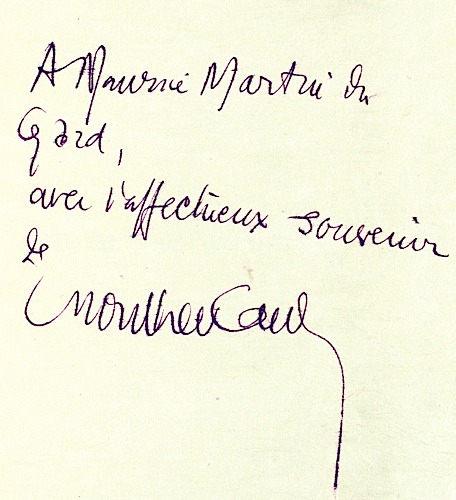 A Maurice Martin du
Gard,
avec l'affectueux souvenir
de
Montherlant